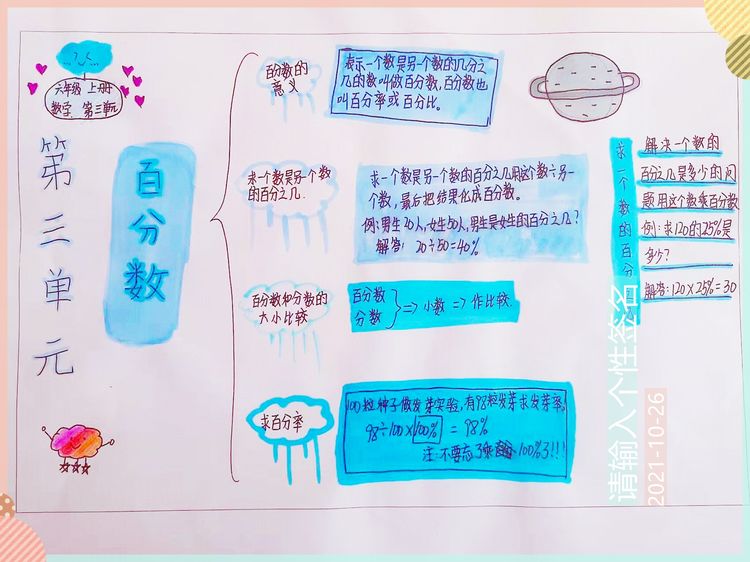 六年级 上册
数学 第三单元
第三单元
百分数
百分数的
意义
表示一个数是另一个数的几分之
几的数叫做百分数,百分数也
叫百分率或百分比。
求一个数是另一个数
的百分之几.
求一个数是另一个数的百分之几用这个数÷另一
个数,最后把结果化成百分数。
例:男生20人,女生50人,男生是女生的百分之几?
解答: 20÷50=40%
百分数和分数的
大小比较
百分数
分数
=> 小数 => 作比较.
求百分率
100粒种子做发芽实验,有98粒发芽求发芽率。
98÷100×100% = 98%
注:不要忘了乘 100%了!!!
求一个数的百分
解决一个数的
百分之几是多少的问
题用这个数乘百分数
例:求120的25%是
多少?
解答:120×25%=30
请输入个性签名
2021-10-26